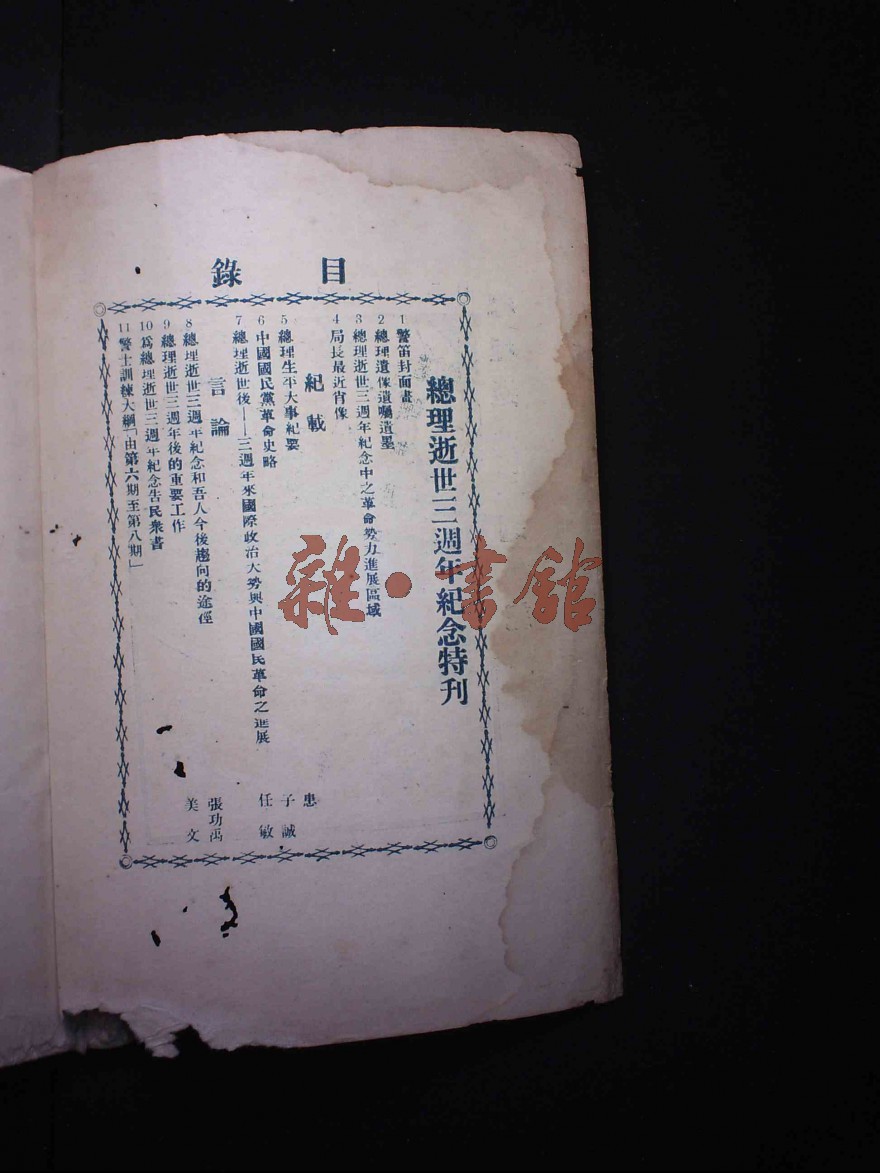 目錄
總理逝世三週年紀念特刊
1 警笛封面畫
2 總理遺像遺囑遺墨
3 總理逝世三週年紀念中之革命勢力進展區域
4 局長最近肖像
紀載
5 總理生平大事紀要
惠子誠
6 中國國民黨革命史略
任敏
7 總理逝世後——三週年來國際政治大勢與中國國民革命之進展
言論
8 總理逝世三週年紀念和吾人今後趨向的途徑
張功禹
9 總理逝世三週年後的重要工作
美文
10 為總理逝世三週年紀念告民衆書
11 警士訓練大綱「由第六期至第八期」
雜·書館